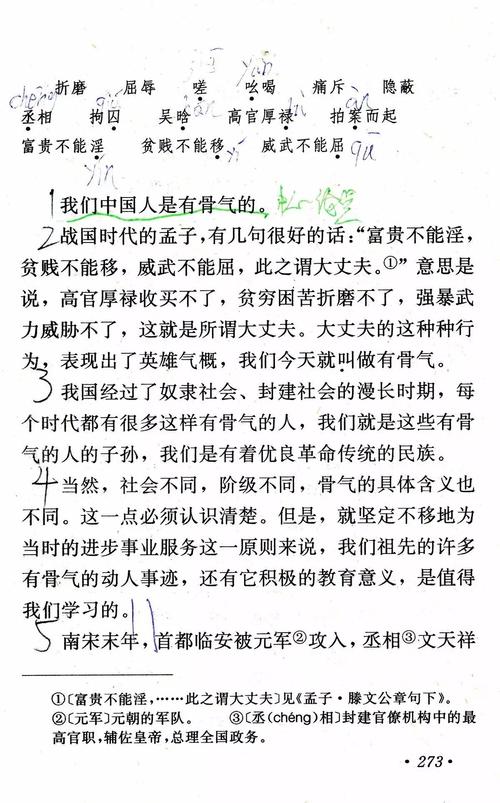 折磨 屈辱 嗟 吆喝 痛斥 隐蔽
chéng yāo
丞相 拘囚 吴晗 高官厚禄 拍案而起
富贵不能淫 贫贱不能移 威武不能屈
yín yí qū
1我们中国人是有骨气的。
2战国时代的孟子,有几句很好的话:“富贵不能淫,
贫贱不能移,威武不能屈,此之谓大丈夫。①”意思是
说,高官厚禄收买不了,贫穷困苦折磨不了,强暴武
力威胁不了,这就是所谓大丈夫。大丈夫的这种种行
为,表现出了英雄气概,我们今天就叫做有骨气。
3我国经过了奴隶社会、封建社会的漫长时期,每
个时代都有很多这样有骨气的人,我们就是这些有骨
气的人的子孙,我们是有着优良革命传统的民族。
4当然,社会不同,阶级不同,骨气的具体含义也
不同。这一点必须认识清楚。但是,就坚定不移地为
当时的进步事业服务这一原则来说,我们祖先的许多
有骨气的动人事迹,还有它积极的教育意义,是值得
我们学习的。
5南宋末年,首都临安被元军②攻入,丞相③文天祥
①〔富贵不能淫,……此之谓大丈夫〕见《孟子·滕文公章句下》。
②〔元军〕元朝的军队。 ③〔丞(chéng)相〕封建官僚机构中的最
高官职,辅佐皇帝,总理全国政务。
·273·